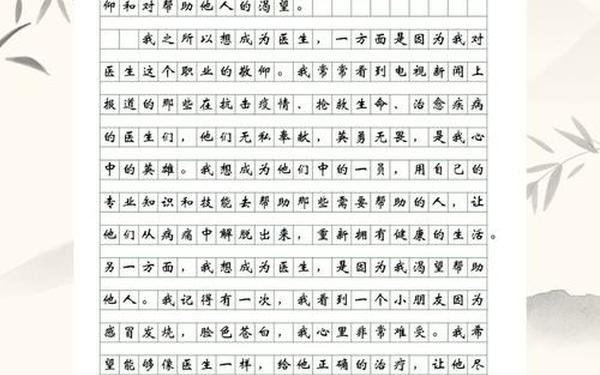 仰和对帮助他人的渴望。
我之所以想成为医生，一方面是因为我对
医生这个职业的敬仰。我常常看到电视新闻上
报道的那些在抗击疫情、抢救生命、治愈疾病
的医生们，他们无私奉献，英勇无畏，是我心
中的英雄。我想成为他们中的一员，用自己的
专业知识和技能去帮助那些需要帮助的人，让
他们从病痛中解脱出来，重新拥有健康的生活。
另一方面，我想成为医生，是因为我渴望帮助
他人。我记得有一次，我看到一个小朋友因为
感冒发烧，脸色苍白，我心里非常难受。我希
望能够像医生一样，给他正确的治疗，让他尽